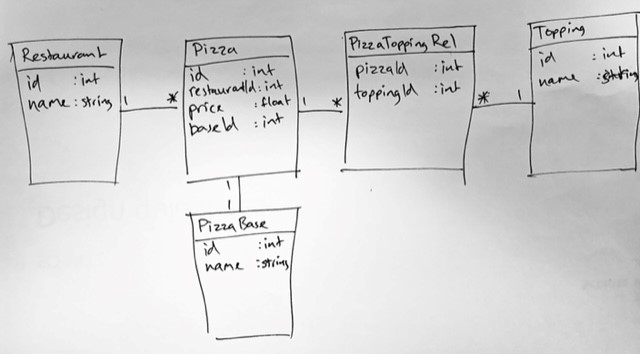 Restaurant
id : int
name : string
1 *
Pizza
id : int
restaurantId : int
price : float
baseId : int
1 *
PizzaToppingRel
pizzaId : int
toppingId : int
* 1
Topping
id : int
name : string
1
1
PizzaBase
id : int
name : string